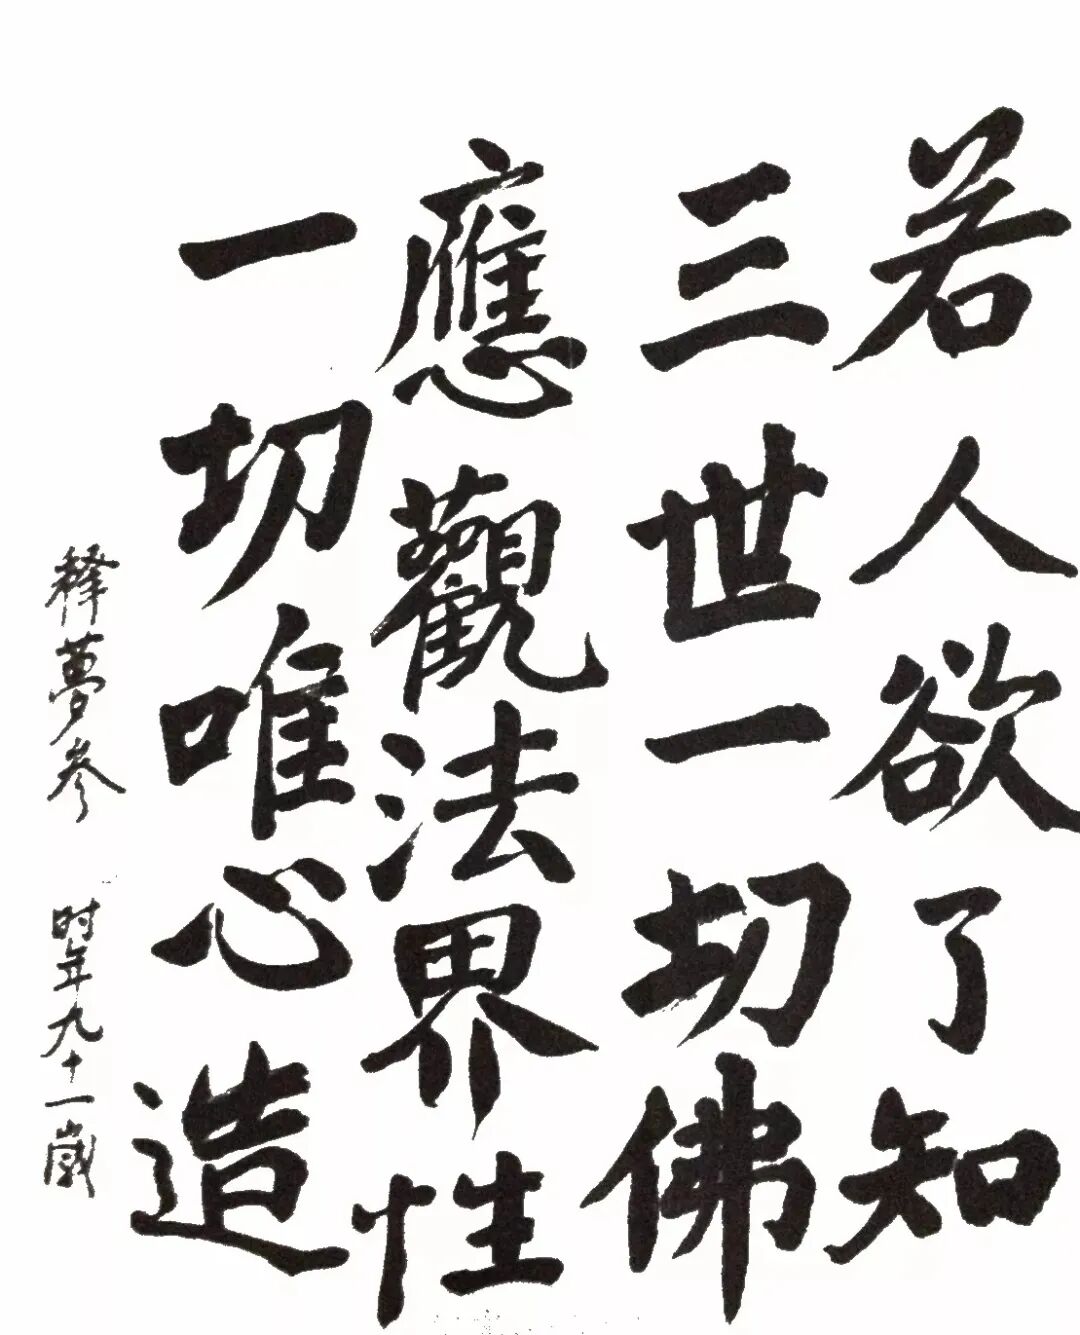 若人欲了知
三世一切佛
應觀法界性
一切唯心造
釋夢參 时年九十一歲